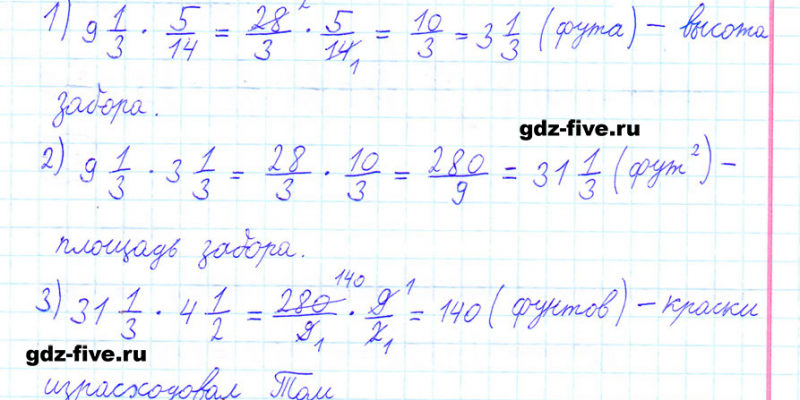 1) 9 1/3 · 5/14 = 28/3 2 · 5/14 1 = 10/3 = 3 1/3 (фута) – высота
забора.
gdz-five.ru
2) 9 1/3 · 3 1/3 = 28/3 · 10/3 = 280/9 = 31 1/3 (фут²) –
площадь забора.
3) 31 1/3 · 4 1/2 = 280/9 140 1 · 9/2 1 1 = 140 (фунтов) – краски
gdz-five.ru
израсходовал Том